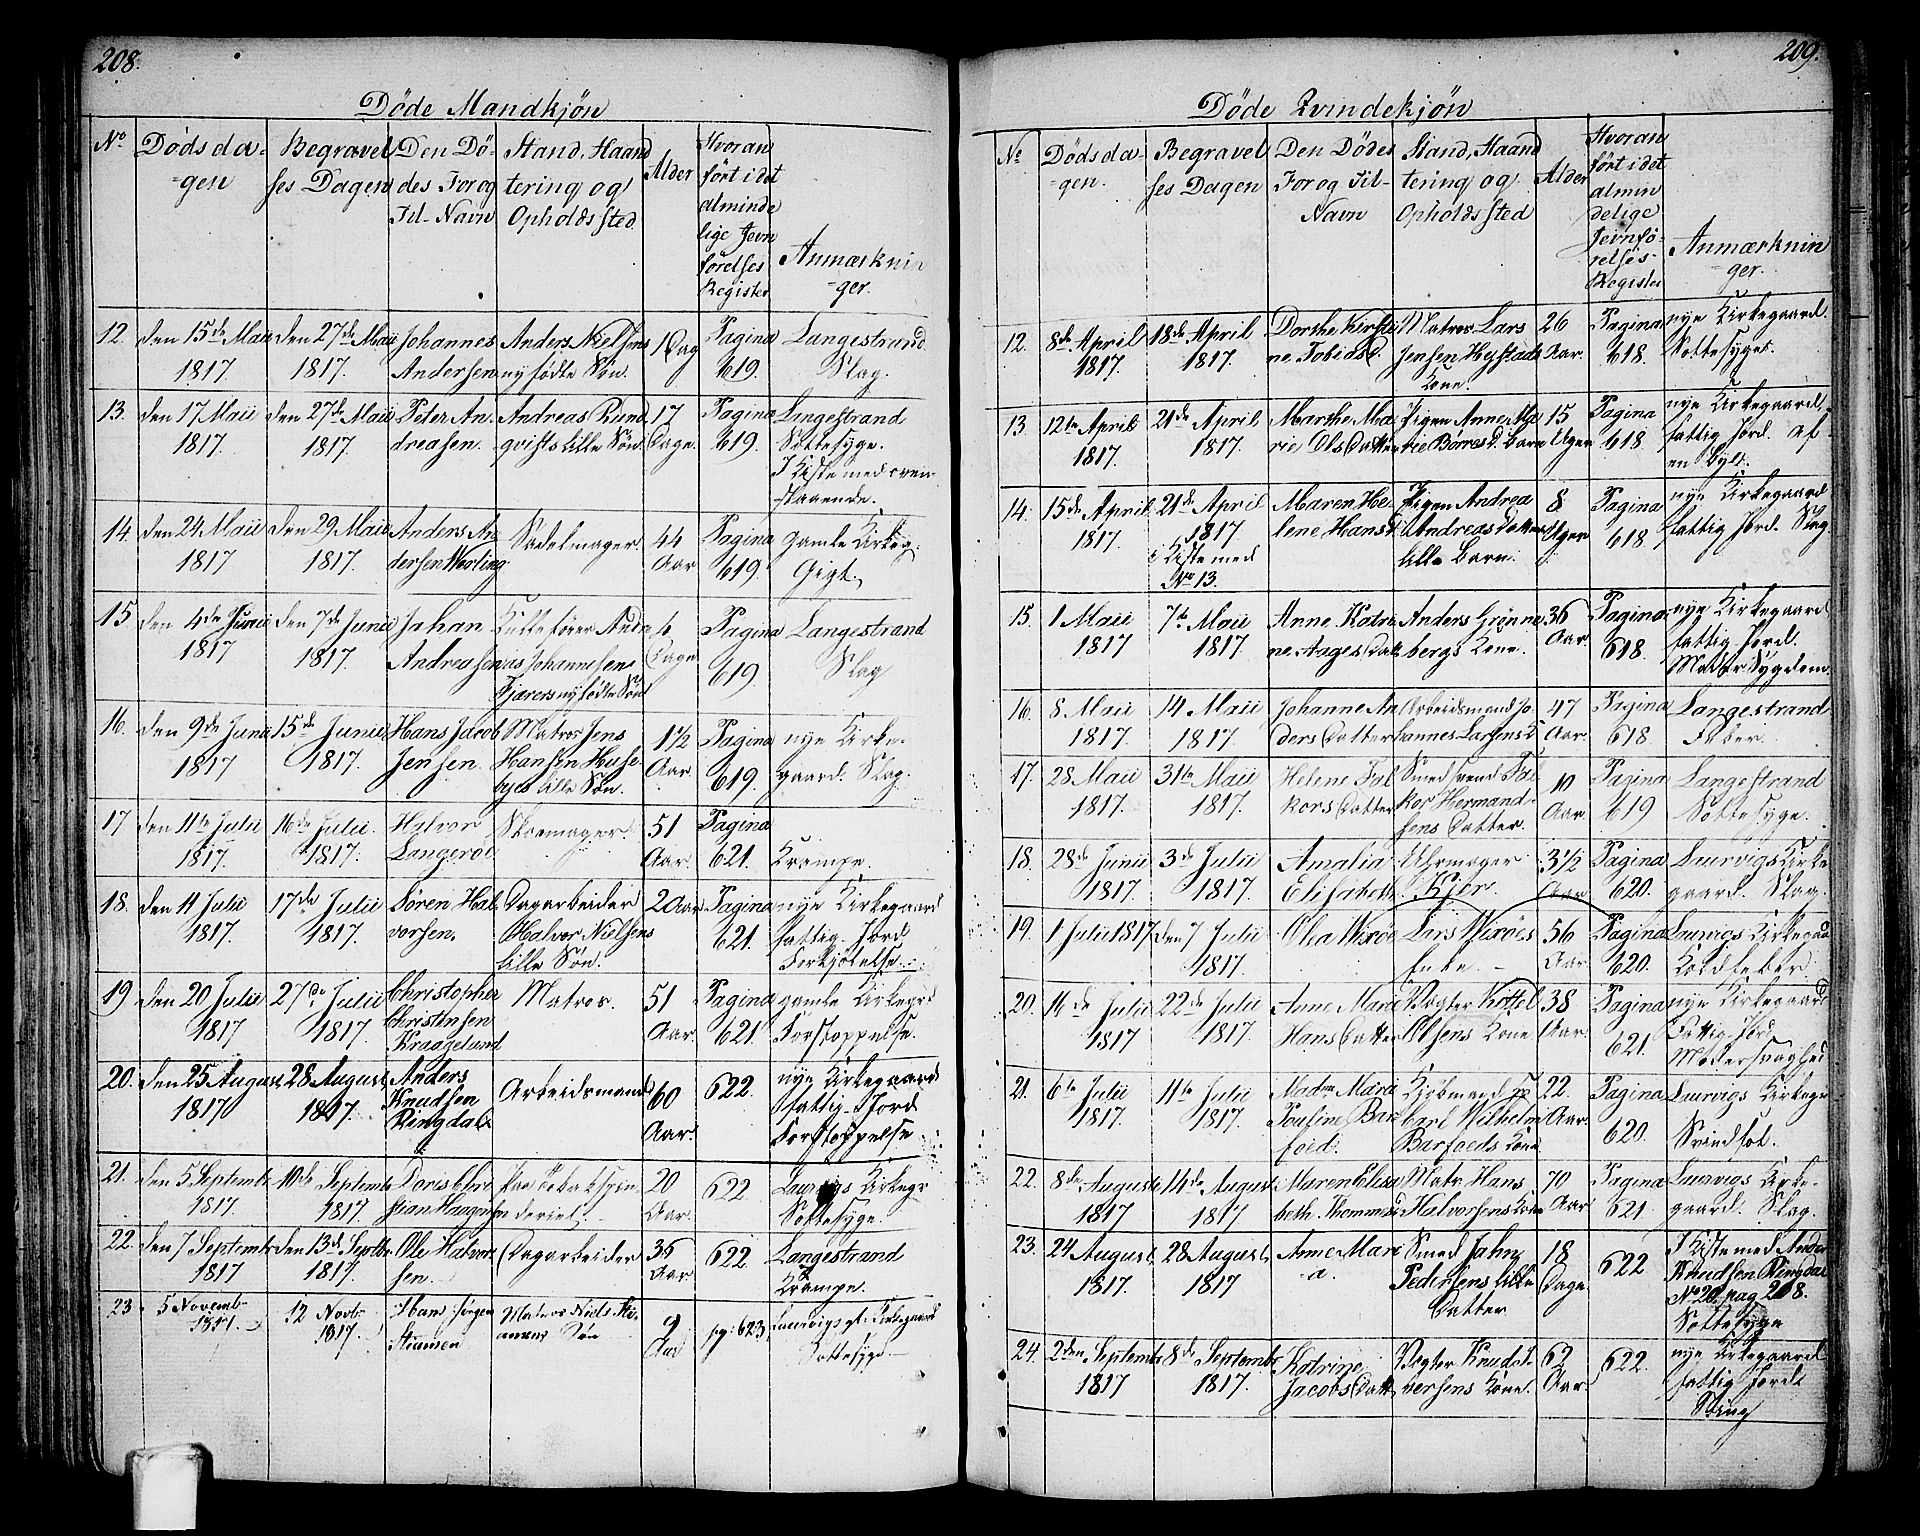 208.
Døde Mandkjøn
No
Dødsda-
gen
Begravel
ses Dagen
Den Dø-
des For og
Til-Navn
Stand, Haand
tering og
Opholdssted
Alder
Hvoran
ført i det
alminde
lige Jevn
førelses
Register
Anmærknin
ger.
12. den 15de Maii
1817.
den 27de Maii
1817.
Johannes
Andersen
Anders Nielsens
nyfødte Søn.
1 Dag
Pagina
619.
Langestrand
Slag.
13. den 17 Maii
1817.
den 27de Maii
1817.
Peter An-
dreasen.
Andreas Rund
qvists lille Søn.
17
Dage
Pagina
619.
Langestrand
Sottesyge.
I Kiste med oven
staaende.
14. den 24 Maii
1817
den 29. Maii
1817.
Anders An
dersen
Sadelmager.
44
Aar
Pagina
619.
gamle Kirkeg.
Gigt.
15 den 4de Junii
1817
den 7de Junii
1817.
Johan
Andreasen
Andre
as Johannesens
nyfødte Søn
6
Dage
Pagina
619.
Langestrand
Slag
16. den 9de Junii
1817
15de Junii
1817.
Hans Jacob
Jensen.
Matros Jens
Hansen Huse
byes lille Søn.
1 1/2
Aar.
Pagina
619.
nye Kirke-
gaard. Slag.
17 den 11te Julii
1817.
16de Julii.
1817.
Halvor
Langerøe
Skoemager.
51
Aar.
Pagina
621.
Krampe.
18. den 11 Julii
1817.
17de Julii
1817.
Søren Hal
vorsen.
Dagarbeider
Halvor Nielsens
lille Søn.
20 Aar
Pagina
621.
nye Kirkegaard
fattig Jord
Forkjølelse.
19 den 20 Julii
1817
27de Julii
1817.
Christopher
Christensen
Kragelund
Matros.
51
Aar.
Pagina
621.
gamle Kirkegrd
Forstoppelse.
20. den 25 August
1817
28 August
1817.
Anders
Knudsen
Ringdal
Arbeidsmand
60
Aar.
622.
nye Kirkegaard
fattig Jord
Forstoppelse
21. den 5 Septembr
1817.
10de Septembr
1817.
20
Aar.
622
Laurvigs Kirkegr
Sottesyge.
22. den 7 Septembr
1817
den 13de Septbr
1817.
Ole Halvor
sen.
Dagarbeider
36
Aar
622.
Langestrand
Krampe.
23 5 Novemb
12 Novbr
1817.
Hans Jørgen
Matros Niels
Søn
9
Aar
pg: 623
Laurvigs gl. Kirkegaard
Sottesyge
209.
Døde Qvindekjøn
No
Dødsda-
gen.
Begravel
ses Dagen
Den Dødes
For og Til-
Navn
Stand, Haand
tering og
Opholdssted
Alder
Hvoran
ført i det
almin
delige
Jevnfø-
relses-
Register
Anmærknin
ger.
12. 8de April
1817.
18de April
1817.
Dorthe Kirsti
ne Tobiasd.
Matros Lars
Jensen Hystads
Kone.
26
Aar.
Pagina
618.
nye Kirkegaard.
Sottesyget.
13 12te April
1817.
21de April
1817.
Marthe Ma
rie Ols Datter
Pigen Anne Ma
rie Børresd. Barn
15
Uger
Pagina
618.
nye Kirkegaard,
fattig Jord. af
en Byld.
14. 15de April
1817.
21de April
1817
i Kiste med
No 13.
Maren He
lene Hansd
Pigen Andrea
Andreas Datters
lille Barn.
8
Uger
Pagina
618.
nye Kirkegaard
fattig Jord. Sting
15. 1 Maii
1817
7de Maii
1817.
Anne Katri
ne Aages Datt
Anders Grønne
bergs Kone.
36
Aar.
Pagina
618.
nye Kirkegaard
fattig Jord.
Moder Sygdom.
16. 8 Maii
1817.
14 Maii
1817.
Johanne An
ders Datter
Arbeidsmand Jo
hannes Larsens K
47
Aar.
Pagina
618.
Langestrand
Feber.
17. 28 Maii
1817.
31te Maii
1817.
Helene Fal
kors Datter
Smed svend Fal
kor Hermand-
sens Datter.
10
Aar.
Pagina
619
Langestrand
Sottesyge.
18. 28de Junii
1817
3de Julii
1817.
Amalia
Elisabeth
Uhrmager
Kjer.
3 1/2
Aar
Pagina
620.
Laurvigs Kirke
gaard. Slag.
19. 1 Julii 1817
den 7 Julii
1817.
Olia Wixøe
Lars Wixøes
Enke.
56
Aar
Pagina
620.
Laurvigs Kirkegaa
Koldfeber.
20. 16de Julii
1817
22de Julii
1817.
Anne Marie
Hans Datter
Vegter Kittel
Olsens Kone
38
Aar.
Pagina
621.
nye Kirkegaard
Fattig Jord
Modersvaghed
21. 6te Julii
1817.
11te Julii
1817.
Madm Maria
Pouline Bar
foed.
Kjøbmand
Carl Wilhelm
Barfoeds Kone
22.
Aar.
Pagina
620.
Laurvigs Kirkegr
Svindsot.
22. 8de August
1817
14de August
1817
Maren Elisa
beth Thommesd
Matr. Hans
Halvorsens Kone
70
Aar
Pagina
621.
Laurvigs Kirke-
gaard. Slag.
23. 24 August
1817.
28 August
1817
Anne Mari
a.
Smed Jahn
Pedersens lille
Datter
18
Dage
622
I Kiste med Anders
Knudsen Ringdal
No 20 pag 208.
Sottesyge
24. 2den Septembr
1817
8de Septembr
1817.
Katrine
Jacobs Datt
Vegter Knud
versens Kone.
62
Aar.
622.
nye Kirkegaard
fattig Jord
Sting